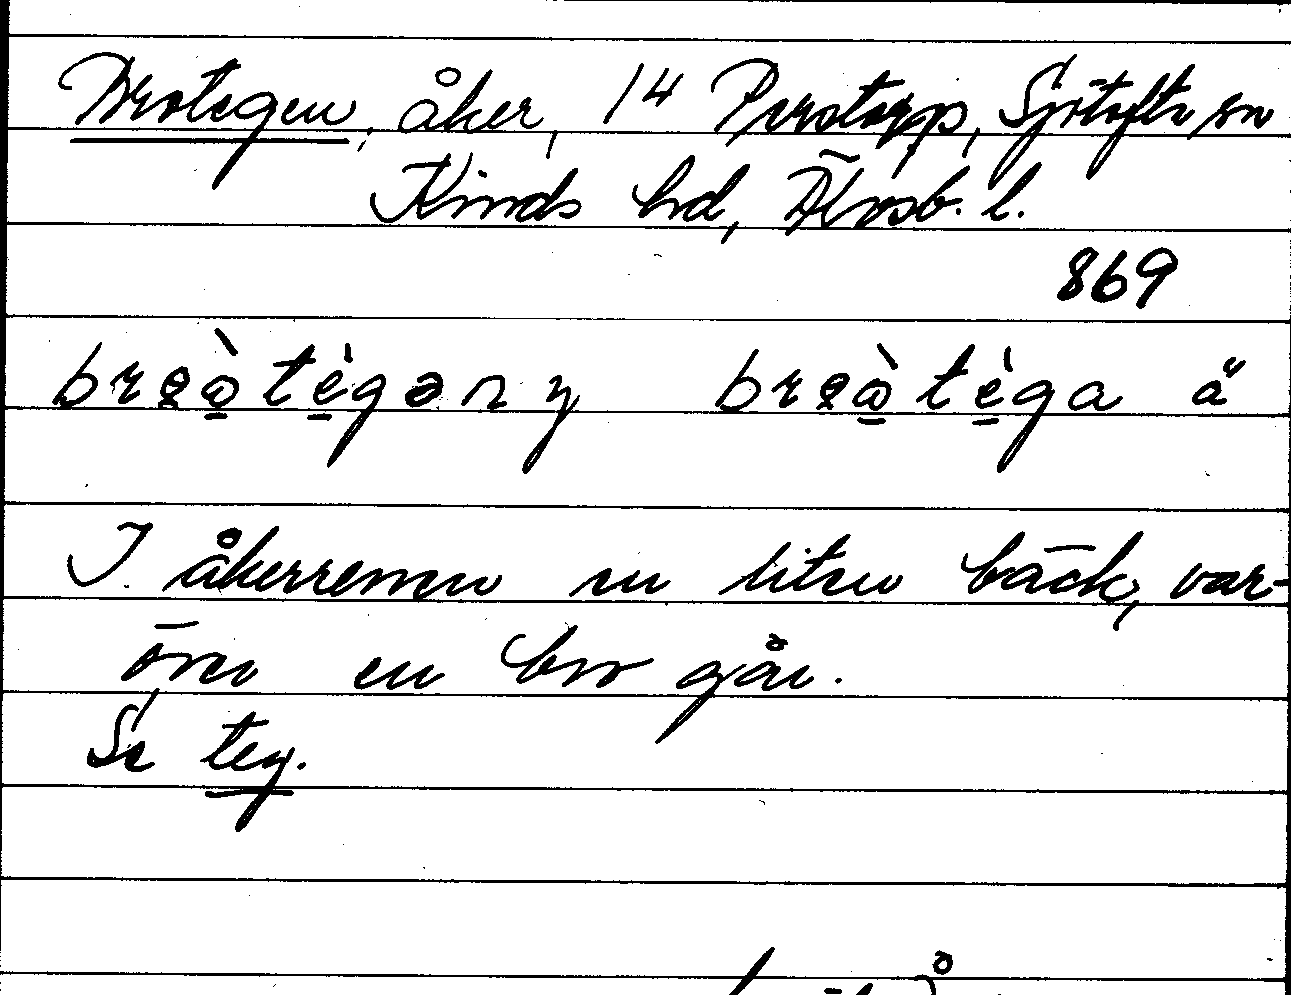 Brotegen, åker, 14 Perstorp, Sjötofta sn
Kinds hd, Älvsb. l.
869
I åkerremen en liten bäck, var-
över en bro går.
Se teg.